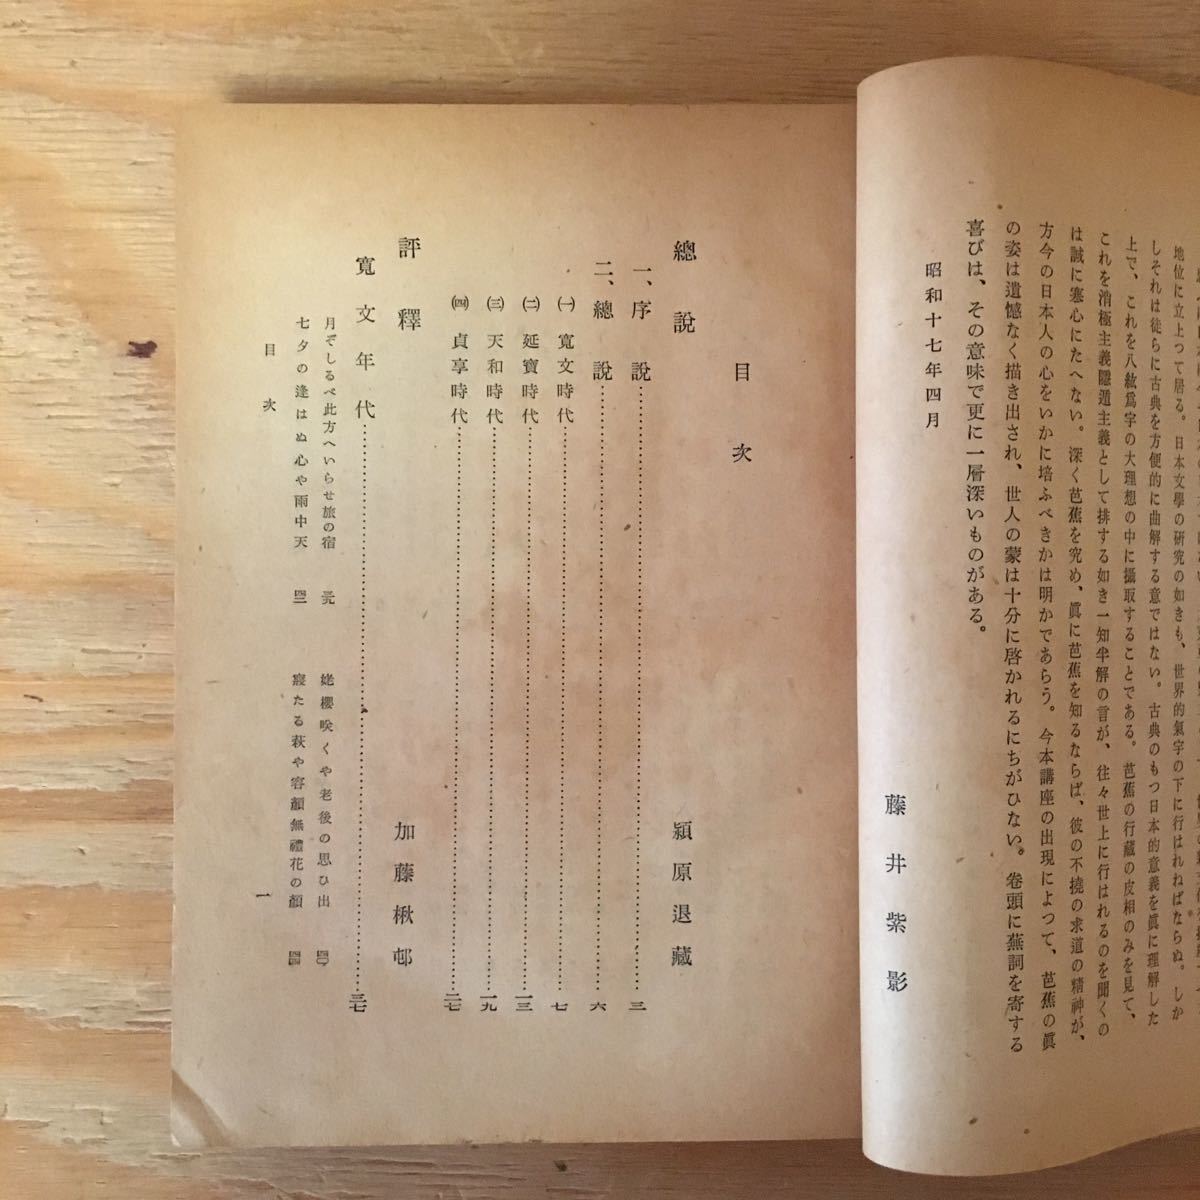 地位に立上つて居る。日本文學の研究の如きも、世界的氣宇の下に行はれねばならぬ。しか
しそれは徒らに古典を方便的に曲解する意ではない。古典のもつ日本的意義を眞に理解した
上で、これを八紘爲宇の大理想の中に攝取することである。芭蕉の行藏の皮相のみを見て、
これを消極主義隱遁主義として排する如き一知半解の言が、往々世上に行はれるのを聞くの
は誠に寒心にたへない。深く芭蕉を究め、眞に芭蕉を知るならば、彼の不撓の求道の精神が、
方今の日本人の心をいかに培ふべきかは明かであらう。今本講座の出現によつて、芭蕉の眞
の姿は遺憾なく描き出され、世人の蒙は十分に啓かれるにちがひない。卷頭に蕪詞を寄する
喜びは、その意味で更に一層深いものがある。
昭和十七年四月
藤井紫影
目次
總說 潁原退藏
一、序說……三
二、總說……六
㈠ 寬文時代……七
㈡ 延寶時代……一三
㈢ 天和時代……一九
㈣ 貞享時代……二七
評釋 加藤楸邨
寬文年代……三七
月ぞしるべ此方へいらせ旅の宿 三九
姥櫻咲くや老後の思ひ出 四〇
七夕の逢はぬ心や雨中天 四二
寢たる萩や容顏無禮花の顏 四四
目次 一